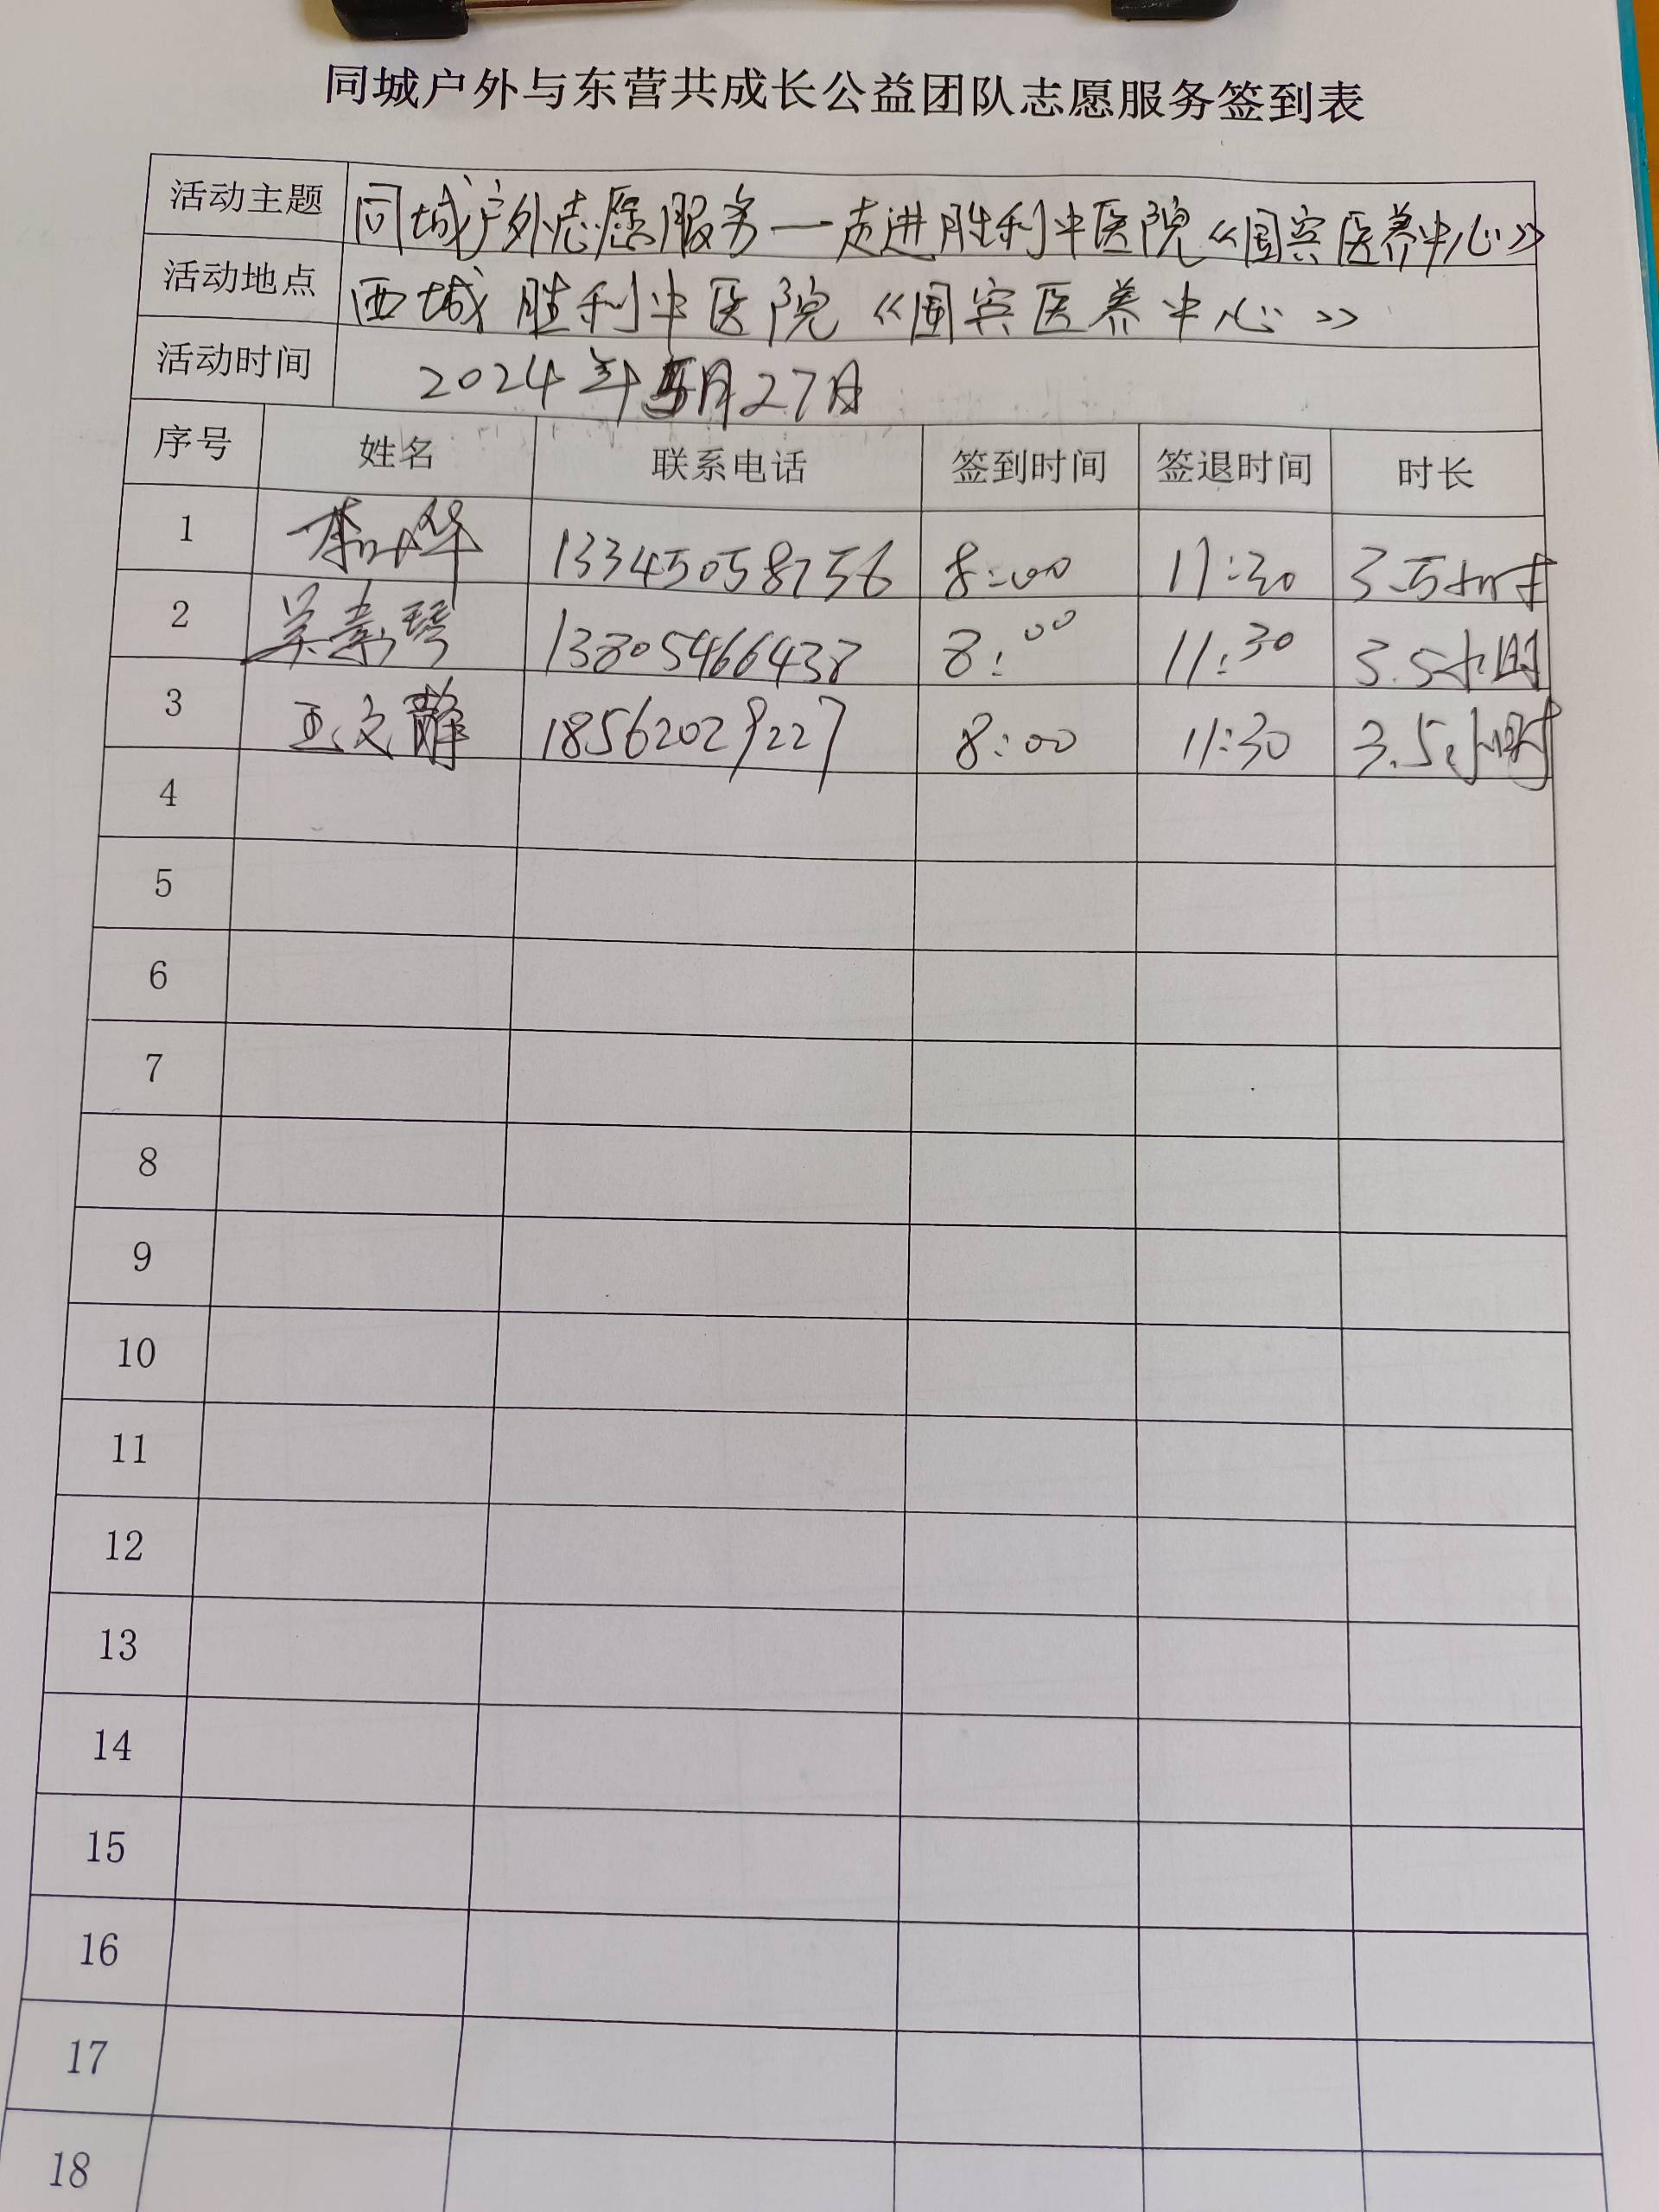 同城户外与东营共成长公益团队志愿服务签到表
活动主题 同城户外志愿服务一走进胜利中医院《国宾医养中心》
活动地点 西城胜利中医院《国宾医养中心》
活动时间 2024年5月27日
序号 姓名 联系电话 签到时间 签退时间 时长
1 13345058756 8:00 11:30 3.5小时
2 吴素琴 13805466438 8:00 11:30 3.5小时
3 王文静 18562029227 8:00 11:30 3.5小时
4
5
6
7
8
9
10
11
12
13
14
15
16
17
18